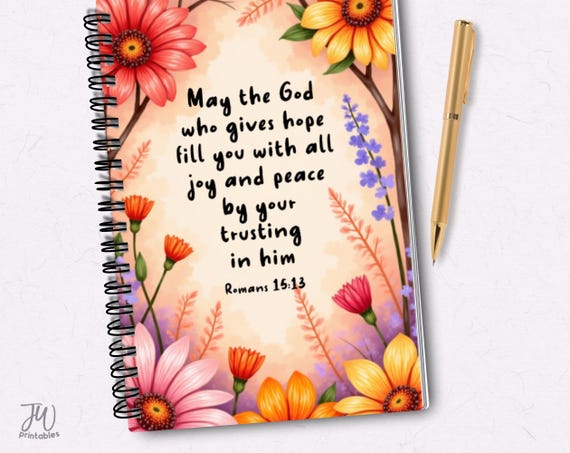 May the God
who gives hope
fill you with all
joy and peace
by your
trusting
in him
Romans 15:13
JW
printables